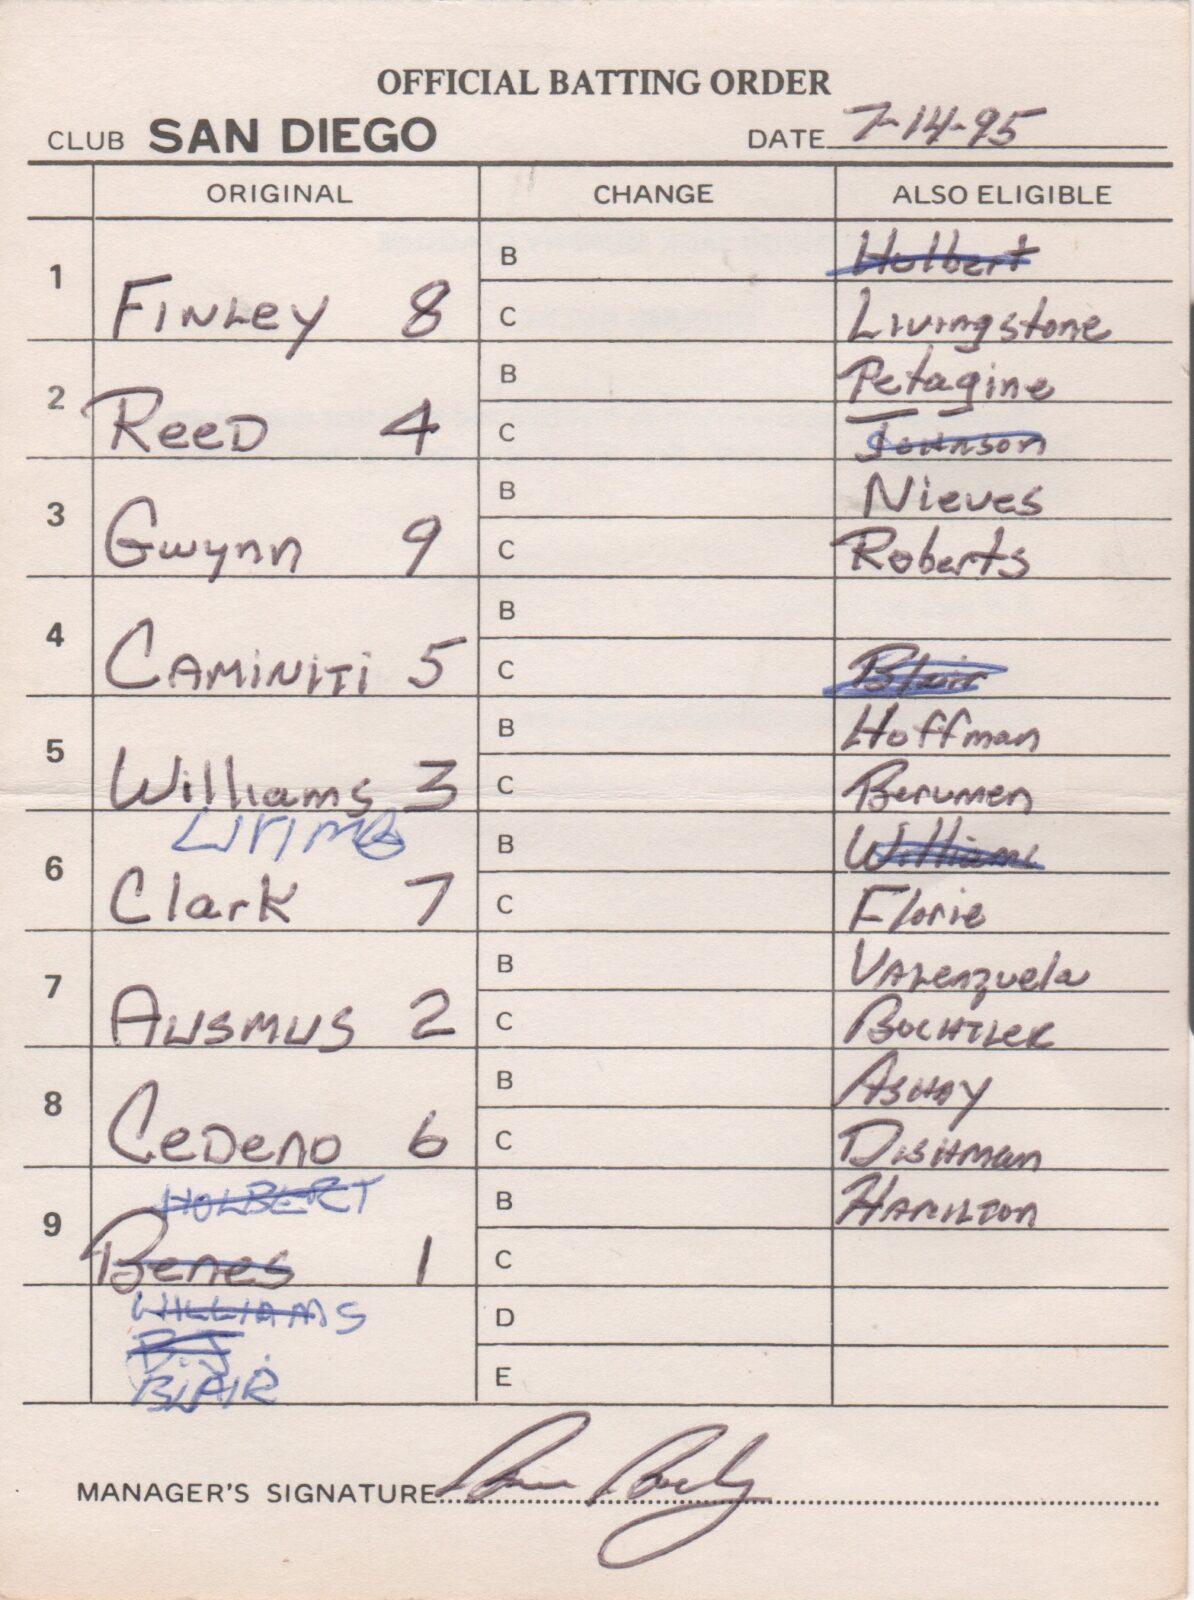 OFFICIAL BATTING ORDER
CLUB SAN DIEGO DATE 7-14-95
ORIGINAL CHANGE ALSO ELIGIBLE
1 FINLEY 8 B Holbert
C Livingstone
2 REED 4 B Petagine
C Johnson
3 Gwynn 9 B Nieves
C Roberts
4 CAMINITI 5 B
C Blair
5 Williams 3 B Hoffman
C Berumen
6 Clark 7 B Williams
C Florie
7 AUSMUS 2 B VALenzuela
C BOCHTLER
8 CEDENO 6 B ASHBY
C DISHMAN
HOLBERT
9 Benes 1 B HAMILTON
C
WILLIAMS D
B.J.
BLAIR E
MANAGER'S SIGNATURE